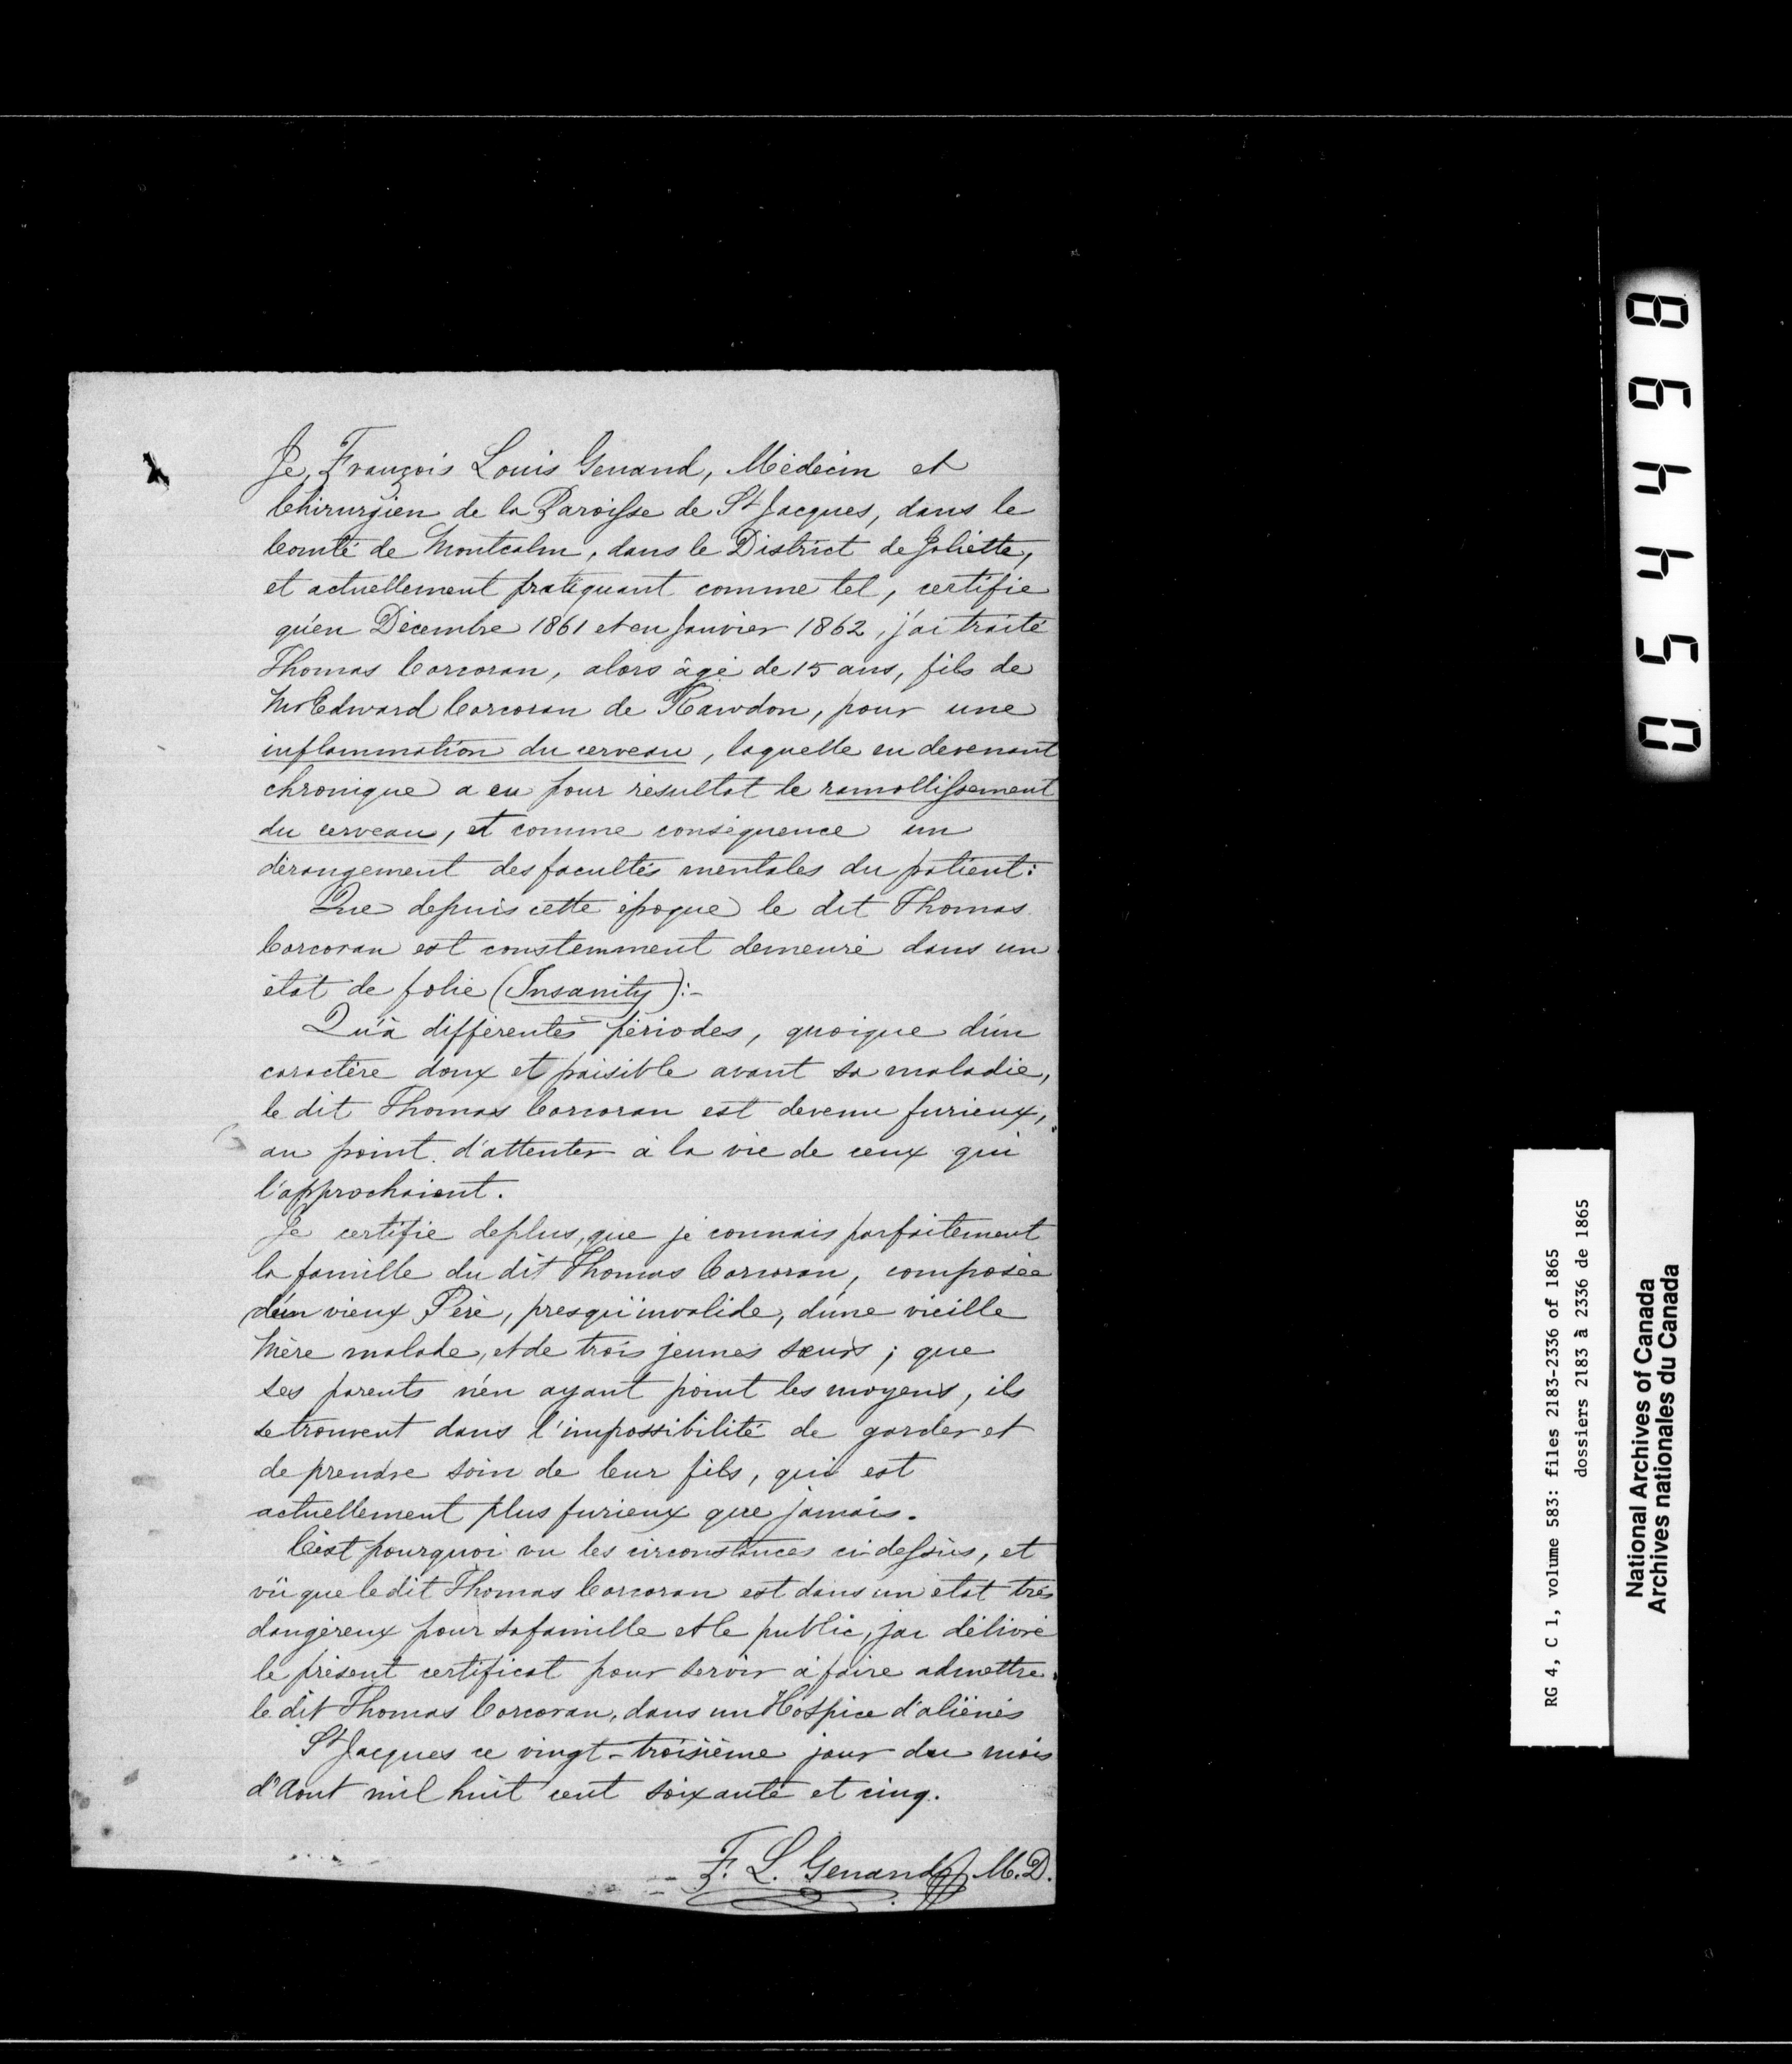 Je, François Louis Genand, Médecin et
Chirurgien de la Paroisse de St Jacques, dans le
Comté de Montcalm, dans le District de Joliette,
et actuellement pratiquant comme tel, certifie
qu'en Décembre 1861 et en Janvier 1862, j'ai traité
Thomas Corcoran, alors âgé de 15 ans, fils de
Mr Edward Corcoran de Rawdon, pour une
inflammation du cerveau, laquelle en devenant
chronique a eu pour résultat le ramollissement
du cerveau, et comme conséquence un
dérangement des facultés mentales du patient:
Que depuis cette époque le dit Thomas
Corcoran est constemment demeuré dans un
état de folie (Insanity):-
Qu'à différentes périodes, quoique d'un
caractère doux et paisible avant sa maladie,
le dit Thomas Corcoran est devenu furieux,
au point d'attenter à la vie de ceux qui
l'approchaient.
Je certifie deplus, que je connais parfaitement
la famille du dit Thomas Corcoran, composée
d'un vieux Père, presqu'invalide, d'une vieille
Mère malade, et de trois jeunes sœurs; que
ses parents n'en ayant point les moyens, ils
se trouvent dans l'impossibilité de garder et
de prendre soin de leur fils, qui est
actuellement plus furieux que jamais.
C'est pourquoi vu les circonstances ci-dessus, et
vû que le dit Thomas Corcoran est dans un état très
dangéreux pour sa famille et le public, j'ai délivré
le présent certificat pour servir à faire admettre
le dit Thomas Corcoran, dans un Hospice d'aliénés
St Jacques ce vingt-troisième jour du mois
d'Aout mil huit cent soixante et cinq.
F. L. Genand M.D.
054498
RG 4, C 1, volume 583: files 2183-2336 of 1865
dossiers 2183 à 2336 de 1865
National Archives of Canada
Archives nationales du Canada